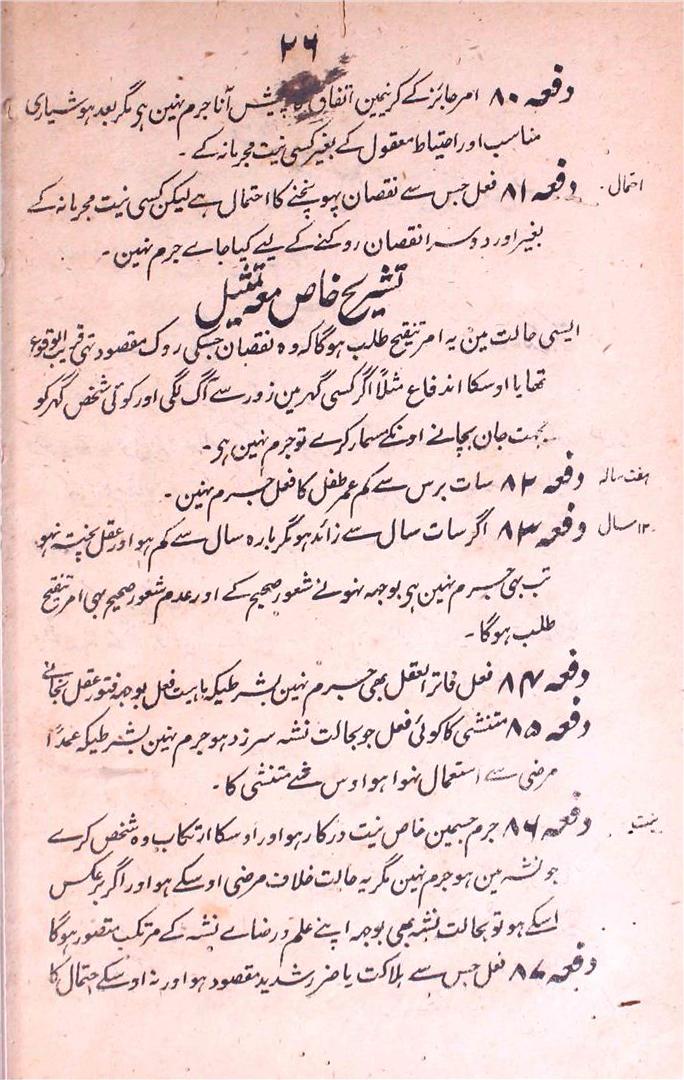 ۲۶
دفعہ ۸۰ امر جائز کے کرنیمین اتفاق پیش آنا جرم نہین ہی مگر بعد ہوشیاری
مناسب اور احتیاط معقول کے بغیر کسی نیت مجرمانہ کے ۔
احتمال
دفعہ ۸۱ فعل جس سے نقصان پہونچنے کا احتمال ہے لیکن کسی نیت مجرمانہ کے
بغیر اور دوسرا نقصان روکنے کے لیے کیا جاے جرم نہین ۔
تشریح خاص معہ تمثیل
ایسی حالت مین یہ امر تنقیح طلب ہوگا کہ وہ نقصان جسکی روک مقصود تہی قریب الوقوع
تھا یا اوسکا اندفاع مثلاً اگر کسی گہر مین زور سے آگ لگی اور کوئی شخص گہر کو
بجہت جان بچانے اونکے مسمار کرے تو جرم نہین ہی ۔
ہفت سالہ
دفعہ ۸۲ سات برس سے کم عمر طفل کا فعل جرم نہین ۔
۱۲ سال
دفعہ ۸۳ اگر سات سال سے زائد ہو مگر بارہ سال سے کم ہو اور عقل پختہ نہو
تب بہی جرم نہین ہی بوجہ نہونے شعور صحیح کے اور عدم شعور صحیح بہی امر تنقیح
طلب ہوگا ۔
دفعہ ۸۴ فعل فاتر العقل بھی جرم نہین بشرطیکہ ماہیت فعل بوجہ فتور عقل نجانے
دفعہ ۸۵ متنشی کا کوئی فعل جو بحالت نشہ سرزد ہو جرم نہین بشرطیکہ عمداً
مرضی سے استعمال نہوا ہو اوس شے متنشی کا ۔
نیت
دفعہ ۸۶ جرم جسمین خاص نیت درکار ہو اور اوسکا ارتکاب وہ شخص کرے
جو نشہ مین ہو جرم نہین مگر یہ حالت خلاف مرضی اوسکے ہو اور اگر برعکس
اسکے ہو تو بحالت نشہ بھی بوجہ اپنے علم و رضاے نشہ کے مرتکب متصور ہوگا
دفعہ ۸۷ فعل جس سے ہلاکت یا ضرر شدید مقصود ہو اور نہ اوسکے احتمال کا